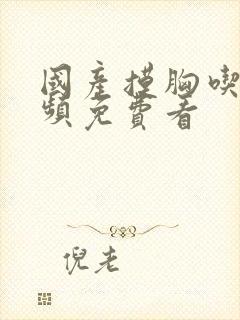 國產摸胸喫
頻免費看
倪老